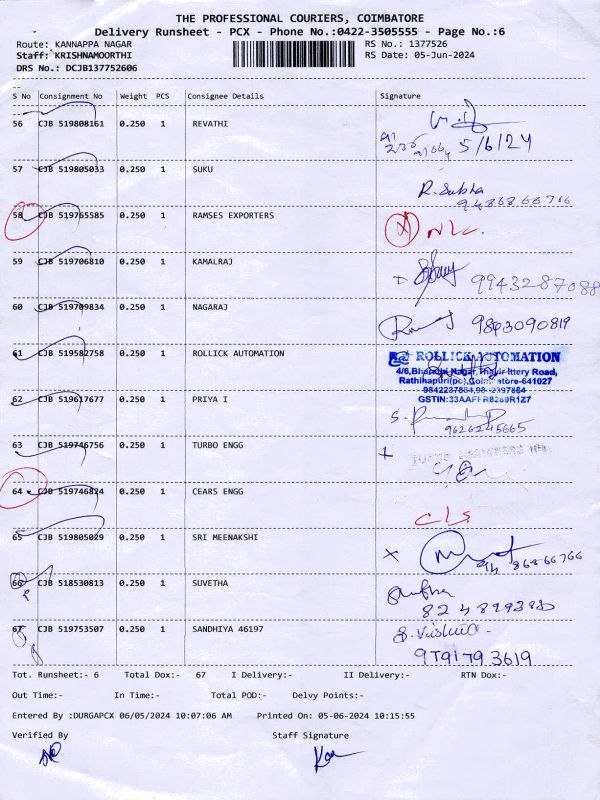 THE PROFESSIONAL COURIERS, COIMBATORE
Delivery Runsheet - PCX - Phone No.:0422-3505555 - Page No.:6
Route: KANNAPPA NAGAR RS No.: 1377526
Staff: KRISHNAMOORTHI RS Date: 05-Jun-2024
DRS No.: DCJB137752606
S No Consignment No Weight PCS Consignee Details Signature
56 CJB 519808161 0.250 1 REVATHI
5/6/24
57 CJB 519805033 0.250 1 SUKU
R. Subha
9486866766
58 CJB 519765585 0.250 1 RAMSES EXPORTERS
N/c.
59 CJB 519706810 0.250 1 KAMALRAJ
9943287088
60 CJB 519709834 0.250 1 NAGARAJ
9843090819
61 CJB 519582758 0.250 1 ROLLICK AUTOMATION
ROLLICK AUTOMATION
4/6, Nagar, Ittery Road,
Rathinapuri(po), -641027
9842237884,
GSTIN:
62 CJB 519617677 0.250 1 PRIYA I
9626245665
63 CJB 519746756 0.250 1 TURBO ENGG
64 CJB 519746824 0.250 1 CEARS ENGG
c l s
65 CJB 519805029 0.250 1 SRI MEENAKSHI
66 CJB 518530813 0.250 1 SUVETHA
67 CJB 519753507 0.250 1 SANDHIYA 46197
9791793619
Tot. Runsheet:- 6 Total Dox:- 67 I Delivery:- II Delivery:- RTN Dox:-
Out Time:- In Time:- Total POD:- Delvy Points:-
Entered By :DURGAPCX 06/05/2024 10:07:06 AM Printed On: 05-06-2024 10:15:55
Verified By Staff Signature